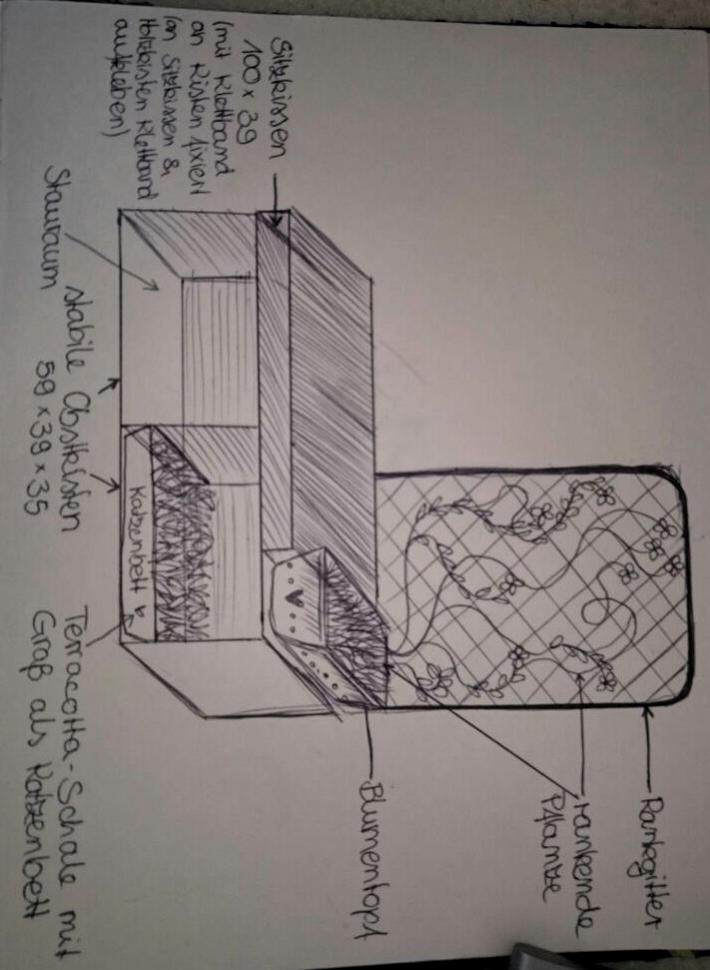 Sitzkissen
100 x 39
(mit Klettband
an Kisten fixiert
(an Sitzkissen &
Holzkisten Klettband
aufkleben)
Stauraum
stabile Obstkisten
59 x 39 x 35
Katzenbett
Terracotta-Schale mit
Graß als Katzenbett
Blumentopf
rankende
Pflanze
Rankgitter